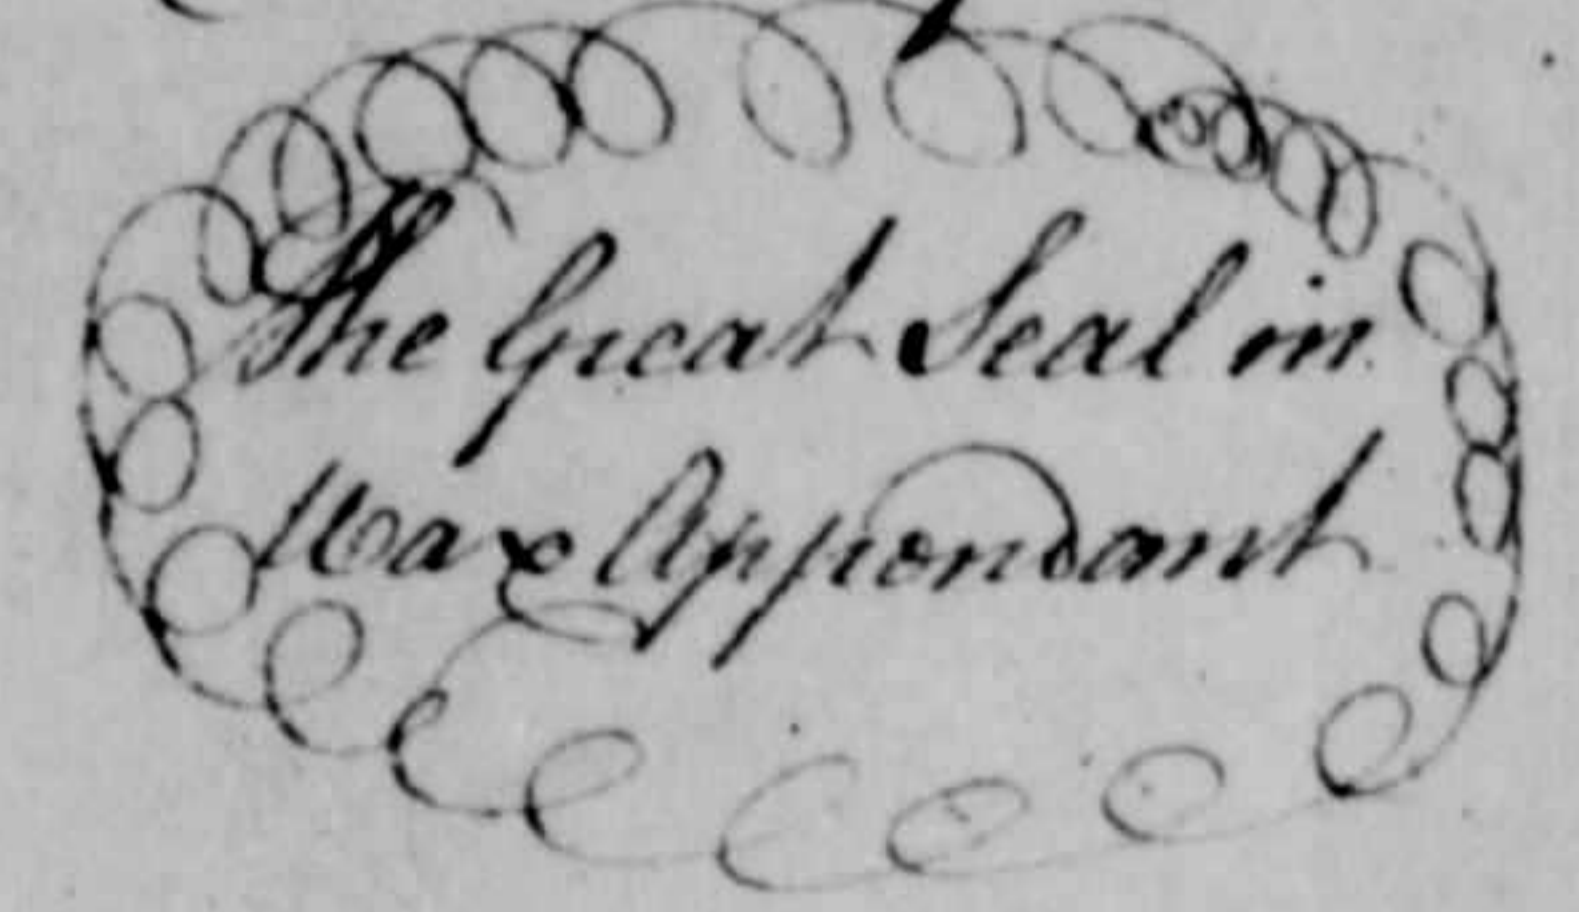 The Great Seal in
Wax Appendant